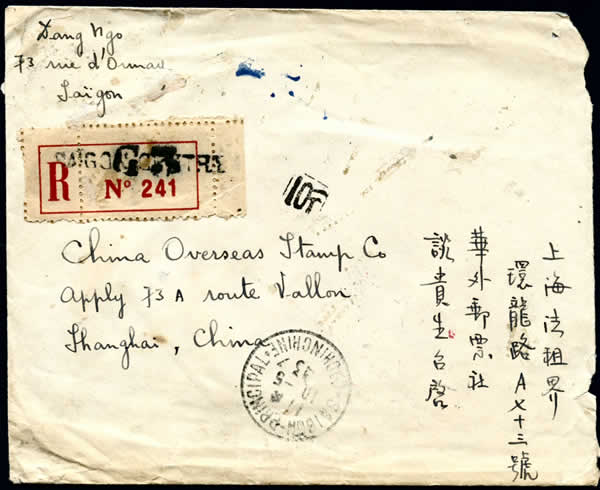 Dang Ngo
73 rue d'Ormay
Saïgon
SAÏGON CENTRAL
R
Nº 241
China Overseas Stamp Co
Apply 73 A route Vallon
Shanghai, China
上海法租界
環龍路A七十三號
華外郵票社
談貴生台啓
SAIGON-PRINCIPAL
COCHINCHINE